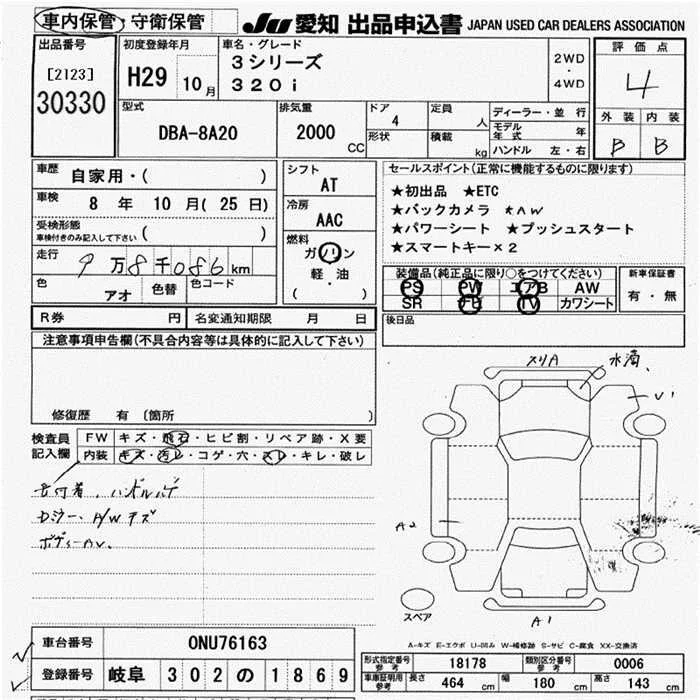 車内保管・守衛保管
JU 愛知 出品申込書 JAPAN USED CAR DEALERS ASSOCIATION
出品番号
[2123]
30330
初度登録年月
H29 10月
車名・グレード
3シリーズ
320i
2WD
・
4WD
評価点
4
外装 内装
B B
型式
DBA-8A20
排気量
2000 CC
ドア 4
形状
定員 人
積載 kg
ディーラー・並行
モデル年式 年
ハンドル 左・右
車歴
自家用・( )
車検
8 年 10 月( 25 日)
受検形態
車検付きのみ記入して下さい ( )
走行
9万8千086km
色
アオ
色替
色コード
シフト
AT
冷房
AAC
燃料
ガソリン
軽・油
( ・ )
セールスポイント(正常に機能するものに限ります)
★初出品 ★ETC
★バックカメラ ★AW
★パワーシート ★プッシュスタート
★スマートキー×2
装備品(純正品に限り○をつけてください)
PS PW エアB AW
SR ナビ TV カワシート
新車保証書
有・無
後日品
R券 円 名変通知期限 月 日
注意事項申告欄(不具合内容等は具体的に記入して下さい)
修復歴 有 〔箇所 〕
検査員
記入欄
FW キズ・飛石・ヒビ割・リペア跡・X要
内装 キズ・汚レ・コゲ・穴・スレ・キレ・破レ
ハンドルハゲ
Dミラー、A/Wキズ
ボディーAV、
スリA
水滴、
V1
A2
スペア
A1
A-キズ E-エクボ U-凹み W-補修跡 S-サビ C-腐食 XX-交換済
車台番号 0NU76163
登録番号 岐阜 302の1869
型式指定番号 参考 18178 類別区分番号 参考 0006
車庫証明用 参考 長さ 464 cm 幅 180 cm 高さ 143 cm